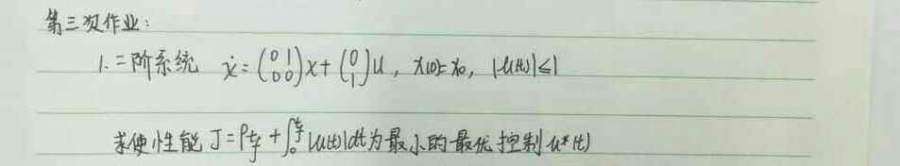 第三次作业:
1. 二阶系统 ẋ=(0 1; 0 0)x+(0; 1)u, x(0)=x₀, |u(t)|≤1
求使性能 J=ρt_f+∫₀^{t_f}|u(t)|dt为最小的最优控制u*(t)